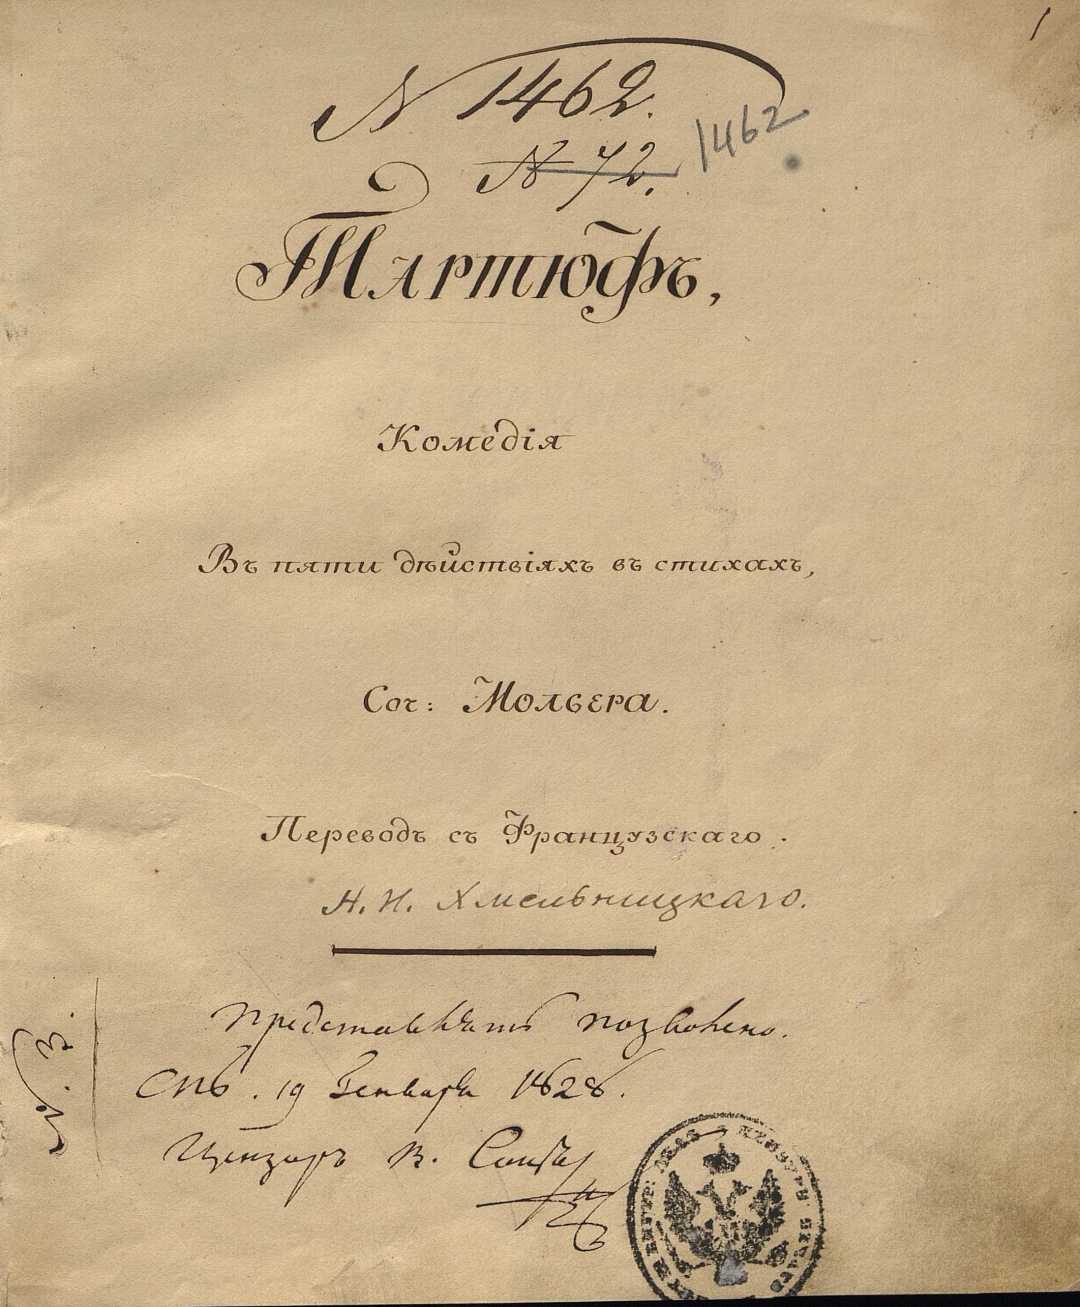 1
N 1462.
N 72. 1462
Тартюфъ,
Комедія
Въ пяти дѣйствіяхъ въ стихахъ,
Соч: Мольера.
Переводъ съ Французскаго.
Н. И. Хмельницкаго.
Представлять позволено.
СПб. 19 Генваря 1828.
Цензоръ